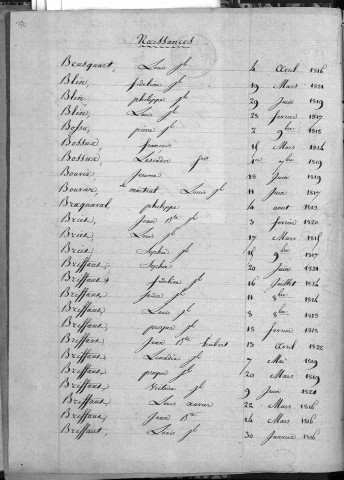 Naissances
Beusquart, Louis Jh 4 Avril 1816
Blin, fidéline Jh 19 Mars 1821
Blin, philippe Jh 29 Juin 1819
Blin, Louis Jh 28 février 1817
Bossu, pierre Jh 2 9bre 1815
Bossux, francois 15 Mars 1816
Bossux, 1er 7bre 1819
Bouvié, Jeanne 18 Juin 1819
Bouvier, martial Louis Jh 11 Juin 1817
Braquaval philippe 4 août 1813
Briet, Jean Bte Jh 3 février 1820
Briet, Louis Jh 17 Mars 1815
Briet, Sophie Jh 15 9bre 1817
Briffaut, Sophie 20 Juin 1821
Briffaut fidéline Jh 16 Juillet 1816
Briffaut, Jh 11 8bre 1816
Briffaut, Louis Jh 8 8bre 1813
Briffaut, prosper Jh 15 février 1815
Briffaut, Jean Bte hubert 15 Avril 1822
Briffaut, Léocadie Jh 7 Mai 1819
Briffaut, prosper Jh 20 Mars 1819
Briffaut, Victoire Jh 9 Juin 1821
Briffaut, Louis xavier 22 Mars 1816
Briffaux, Jean Bte 14 Mars 1816
Briffaut, Louis Jh 30 Janvier 1816